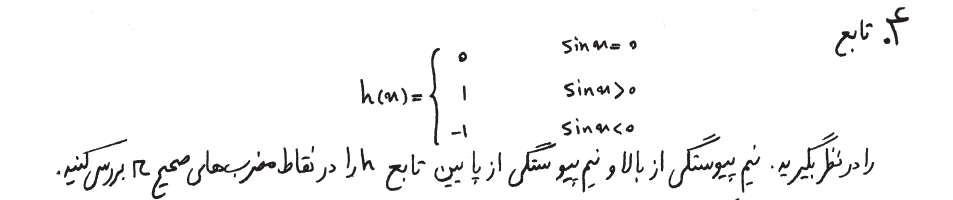 ۴. تابع
h(x) = { 0 sin x = 0
1 sin x > 0
-1 sin x < 0
را در نظر بگیرید. نیم پیوستگی از بالا و نیم پیوستگی از پایین تابع h را در نقاط مضرب‌های صحیح π بررسی کنید.